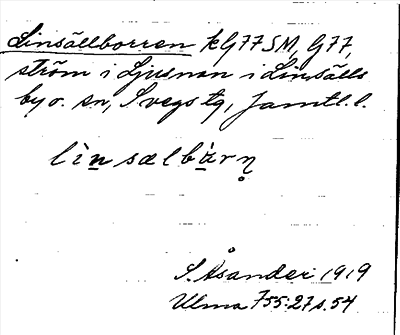 Linsällborren kG77SM, G77,
ström i Ljusnan i Linsälls
by o. sn, Svegs tg, Jämtl. l.
lìnsælbàrn̥
S. Åsander 1919
Ulma 755:27 s. 54